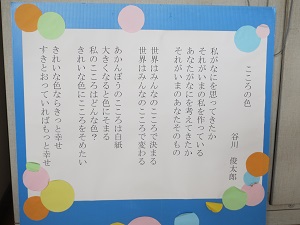 こころの色
谷川 俊太郎
私がなにを思ってきたか
それがいまの私を作っている
あなたがなにを考えてきたか
それがいまのあなたそのもの
世界はみんなのこころで決まる
世界はみんなのこころで変わる
あかんぼうのこころは白紙
大きくなると色にそまる
私のこころはどんな色?
きれいな色にこころをそめたい
きれいな色ならきっと幸せ
すきとおっていればもっと幸せ